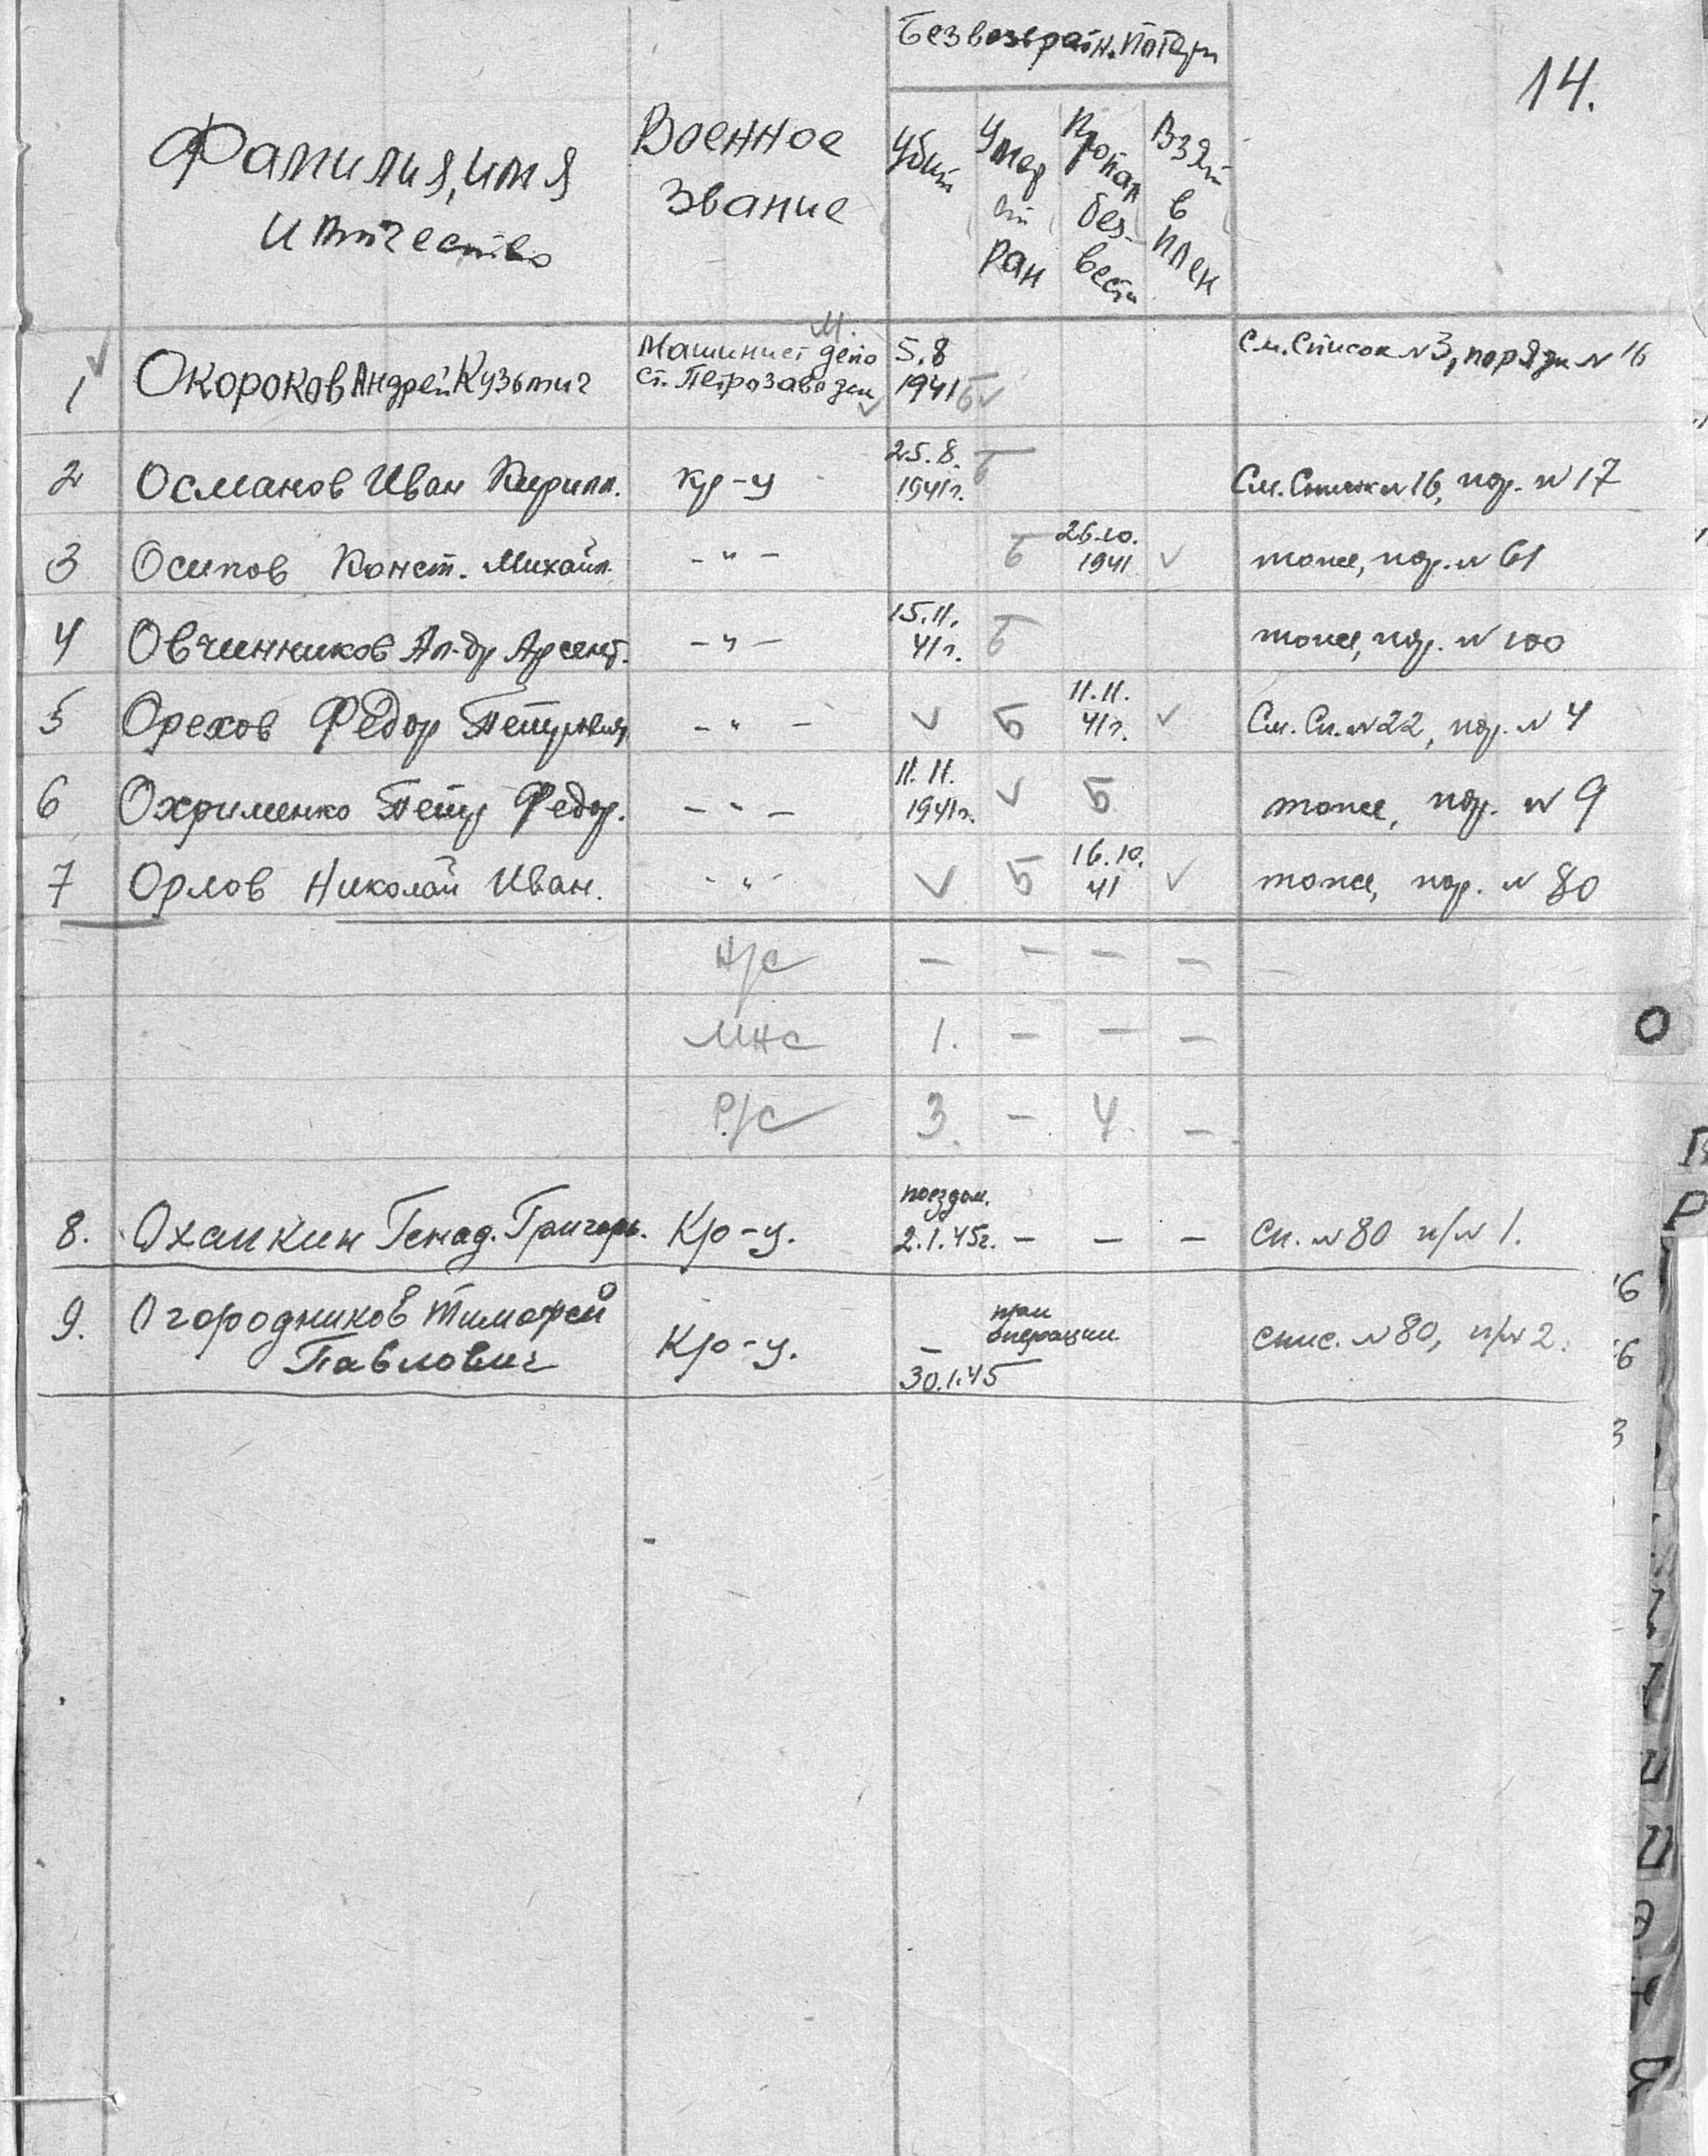 14.
Безвозвратн. потери
Фамилия, имя
и отчество
Военное
звание
Убит
Умер
от
ран
Пропал
без
вести
Взят
в
плен
1 Окороков Андрей Кузьмич
М.
Машинист депо
ст. Петрозаводск
5.8
1941 Б
См. Список № 3, порядк № 16
2 Османов Иван Кирилл. кр-ц
25.8.
1941г. Б
См. Список № 16, пор. № 17
3 Осипов Конст. Михайл. -"- Б
26.10.
1941
тоже, пор. № 61
4 Овчинников Ал-др Арсент. -"-
15.11.
41г. Б
тоже, пор. № 100
5 Орехов Федор Петрович -"- Б
11.11.
41г.
См. Сп. № 22, пор. № 4
6 Охрименко Петр Федор. -"-
11.11.
1941г. Б
тоже, пор. № 9
7 Орлов Николай Иван. -"- Б
16.10.
41
тоже, пор. № 80
Н/С — — — —
МНС 1. — — —
Р/С 3. — 4. —
8. Охапкин Генад. Григорь. Кр-ц.
поездом.
2.1.45г. — — —
сп. № 80 п/№ 1.
9. Огородников Тимофей
Павлович
Кр-ц.
—
30.1.45
при
операции
спис. № 80, п/№ 2.
О
Р